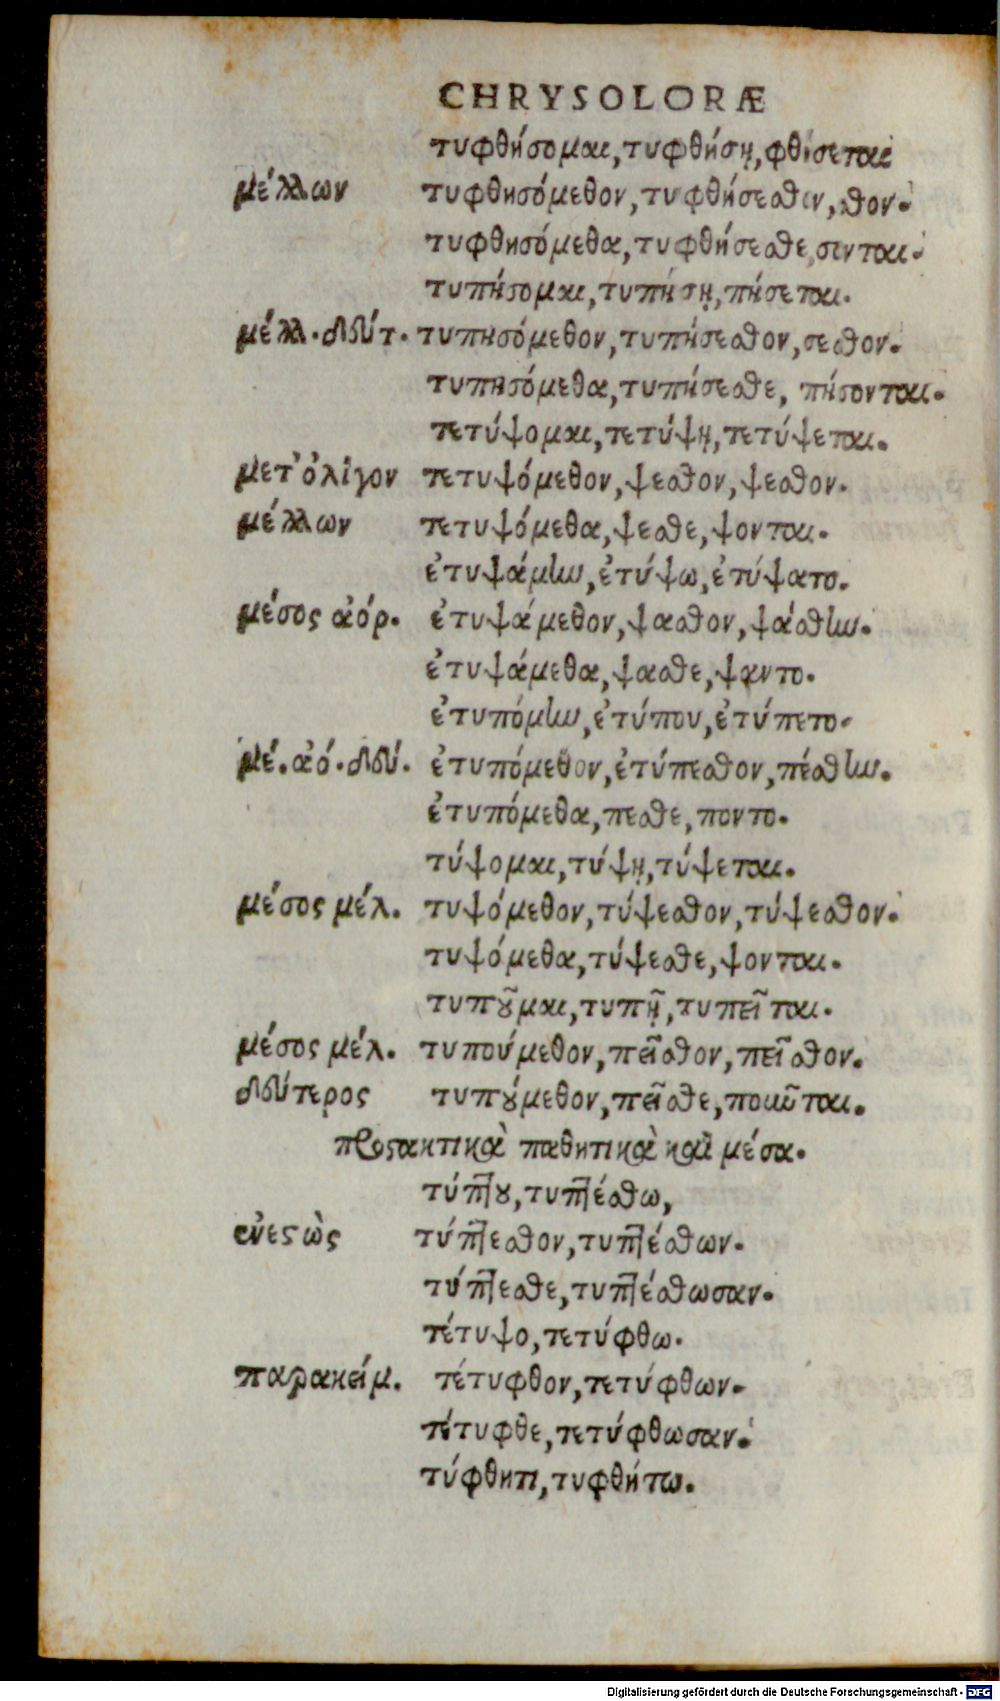 CHRYSOLORÆ
τυφθήσομαι, τυφθήσῃ, φθήσεται
μέλλων τυφθησόμεθον, τυφθήσεσθον, σθον.
τυφθησόμεθα, τυφθήσεσθε, σονται.
τυπήσομαι, τυπήσῃ, πήσεται.
μέλλ. δεύτ. τυπησόμεθον, τυπήσεσθον, σεσθον.
τυπησόμεθα, τυπήσεσθε, πήσονται.
τετύψομαι, τετύψῃ, τετύψεται.
μετ' ὀλίγον τετυψόμεθον, ψεσθον, ψεσθον.
μέλλων τετυψόμεθα, ψεσθε, ψονται.
ἐτυψάμην, ἐτύψω, ἐτύψατο.
μέσος ἀόρ. ἐτυψάμεθον, ψασθον, ψάσθην.
ἐτυψάμεθα, ψασθε, ψαντο.
ἐτυπόμην, ἐτύπου, ἐτύπετο.
μέ. ἀό. δεύ. ἐτυπόμεθον, ἐτύπεσθον, πέσθην.
ἐτυπόμεθα, πεσθε, ποντο.
τύψομαι, τύψῃ, τύψεται.
μέσος μέλ. τυψόμεθον, τύψεσθον, τύψεσθον.
τυψόμεθα, τύψεσθε, ψονται.
τυποῦμαι, τυπῇ, τυπεῖται.
μέσος μέλ. τυπούμεθον, πεῖσθον, πεῖσθον.
δεύτερος τυπούμεθον, πεῖσθε, ποιῶται.
προστακτικὰ παθητικὰ καὶ μέσα.
τύπτου, τυπτέσθω,
ἐνεστὼς τύπτεσθον, τυπτέσθων.
τύπτεσθε, τυπτέσθωσαν.
τέτυψο, τετύφθω.
παρακείμ. τέτυφθον, τετύφθων.
τέτυφθε, τετύφθωσαν.
τύφθητι, τυφθήτω.
Digitalisierung gefördert durch die Deutsche Forschungsgemeinschaft - DFG